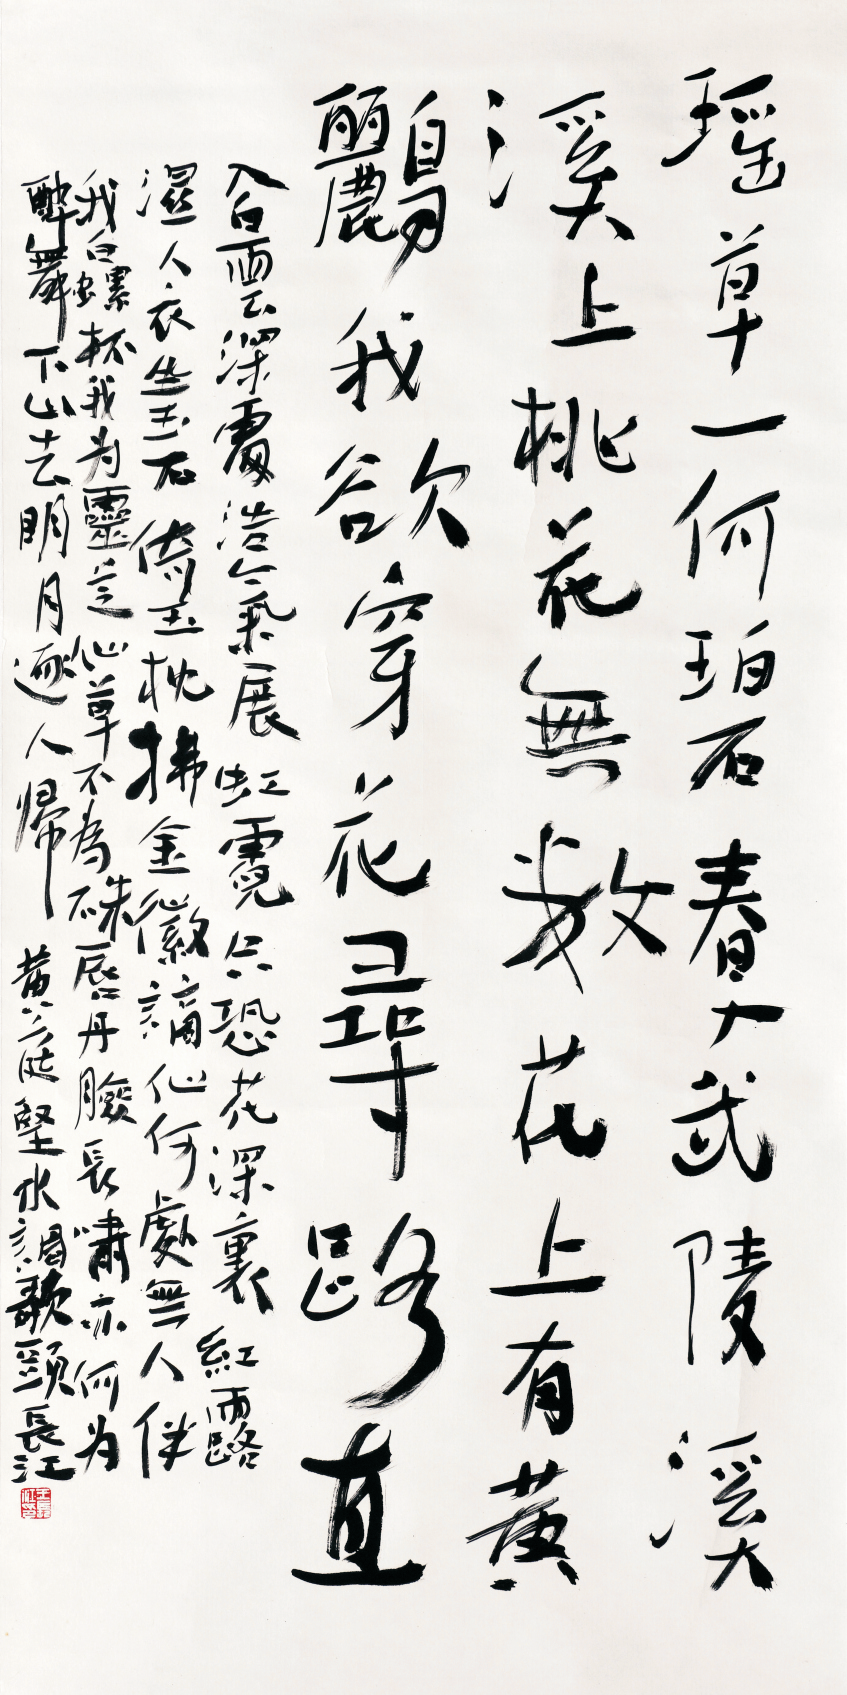 瑤草一何碧春入武陵溪
溪上桃花無數花上有黃
鸝我欲穿花尋路直
入白雲深處浩氣展虹霓只恐花深裏紅露
濕人衣坐玉石倚玉枕拂金徽謫仙何處無人伴
我白螺杯我为靈芝仙草不為硃唇丹臉長嘯亦何为
醉舞下山去明月逐人歸 黃庭堅水調歌頭長江